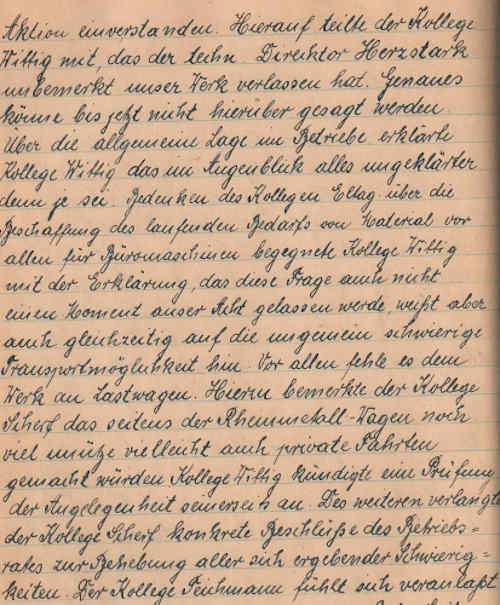 Aktion einverstanden. Hierauf teilte der Kollege
Wittig mit, das der techn. Direktor Herzstark
unbemerkt unser Werk verlassen hat. Genaues
könne bis jetzt nicht hierüber gesagt werden.
Über die allgemeine Lage im Betriebe erklärte
Kollege Wittig das im Augenblick alles ungeklärter
denn je sei. Bedenken des Kollegen Eltag. über die
Beschaffung des laufenden Bedarfs von Material vor
allen für Büromaschinen begegnete Kollege Wittig
mit der Erklärung, das diese Frage auch nicht
einen Moment auser Acht gelassen werde, weißt aber
auch gleichzeitig auf die ungemein schwierige
Transportmöglichkeit hin. Vor allen fehle es dem
Werk an Lastwagen. Hierzu bemerkte der Kollege
Scherf das seitens der Rheinmetall-Wagen noch
viel unütze vielleicht auch private Fahrten
gemacht würden Kollege Wittig kündigte eine Prüfung
der Angelegenheit seinerseits an. Des weiteren verlangte
der Kollege Scherf konkrete Beschlüße des Betriebs=
rates zur Behebung aller sich ergebender Schwierig=
keiten. Der Kollege Teichmann fühlt sich veranlaßt